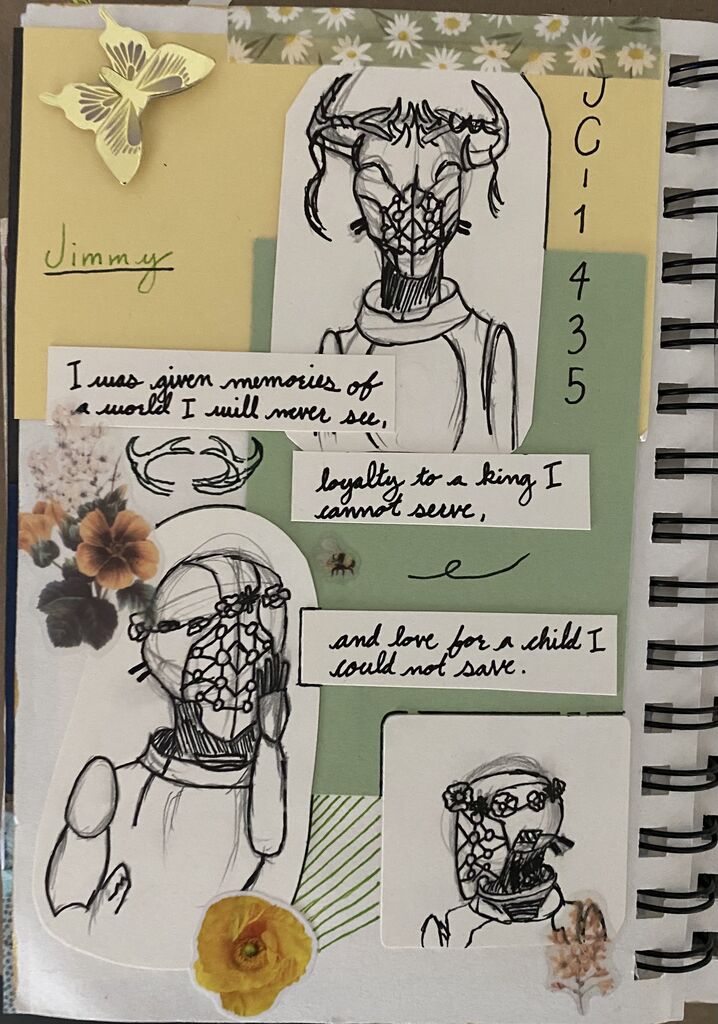 J
C
-
1
4
3
5
Jimmy
I was given memories of
a world I will never see,
loyalty to a king I
cannot serve,
and love for a child I
could not save.